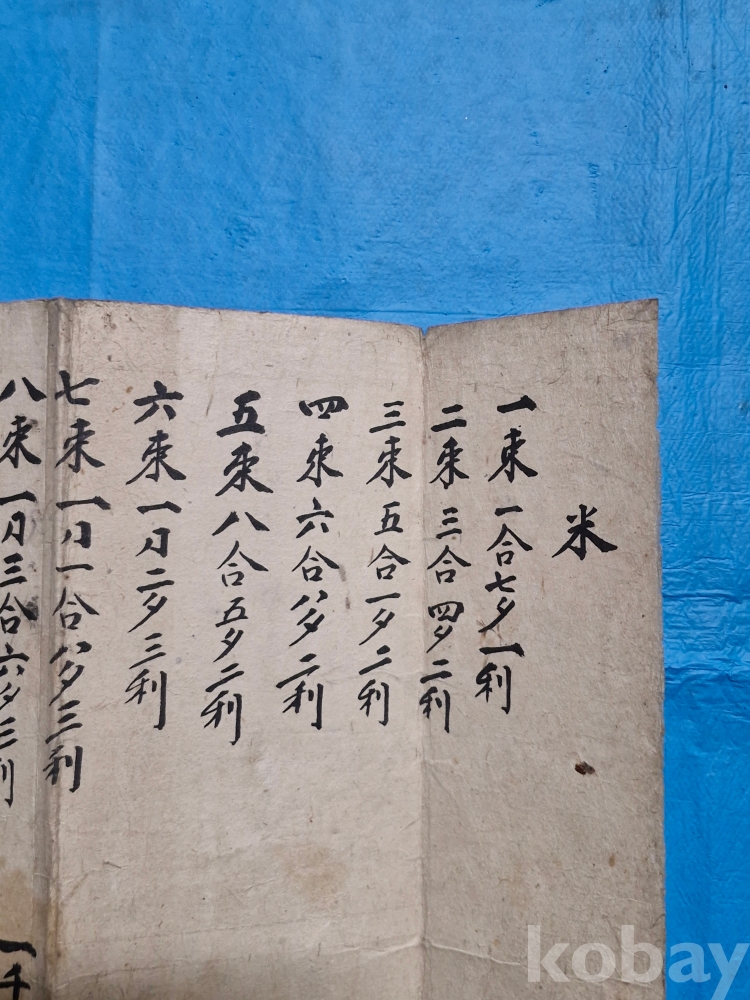 米
一束一合七夕一利
二束三合四夕二利
三束五合一夕二利
四束六合八夕二利
五束八合五夕二利
六束一刀二夕三利
七束一刀一合八夕三利
八束一刀三合六夕三利
一千
kobay